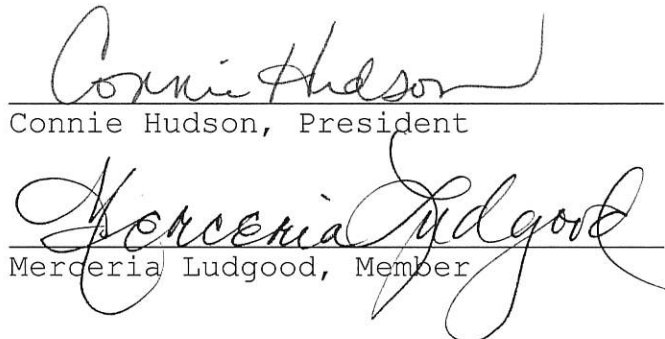 Connie Hudson
Connie Hudson, President
Merceria Ludgood
Merceria Ludgood, Member